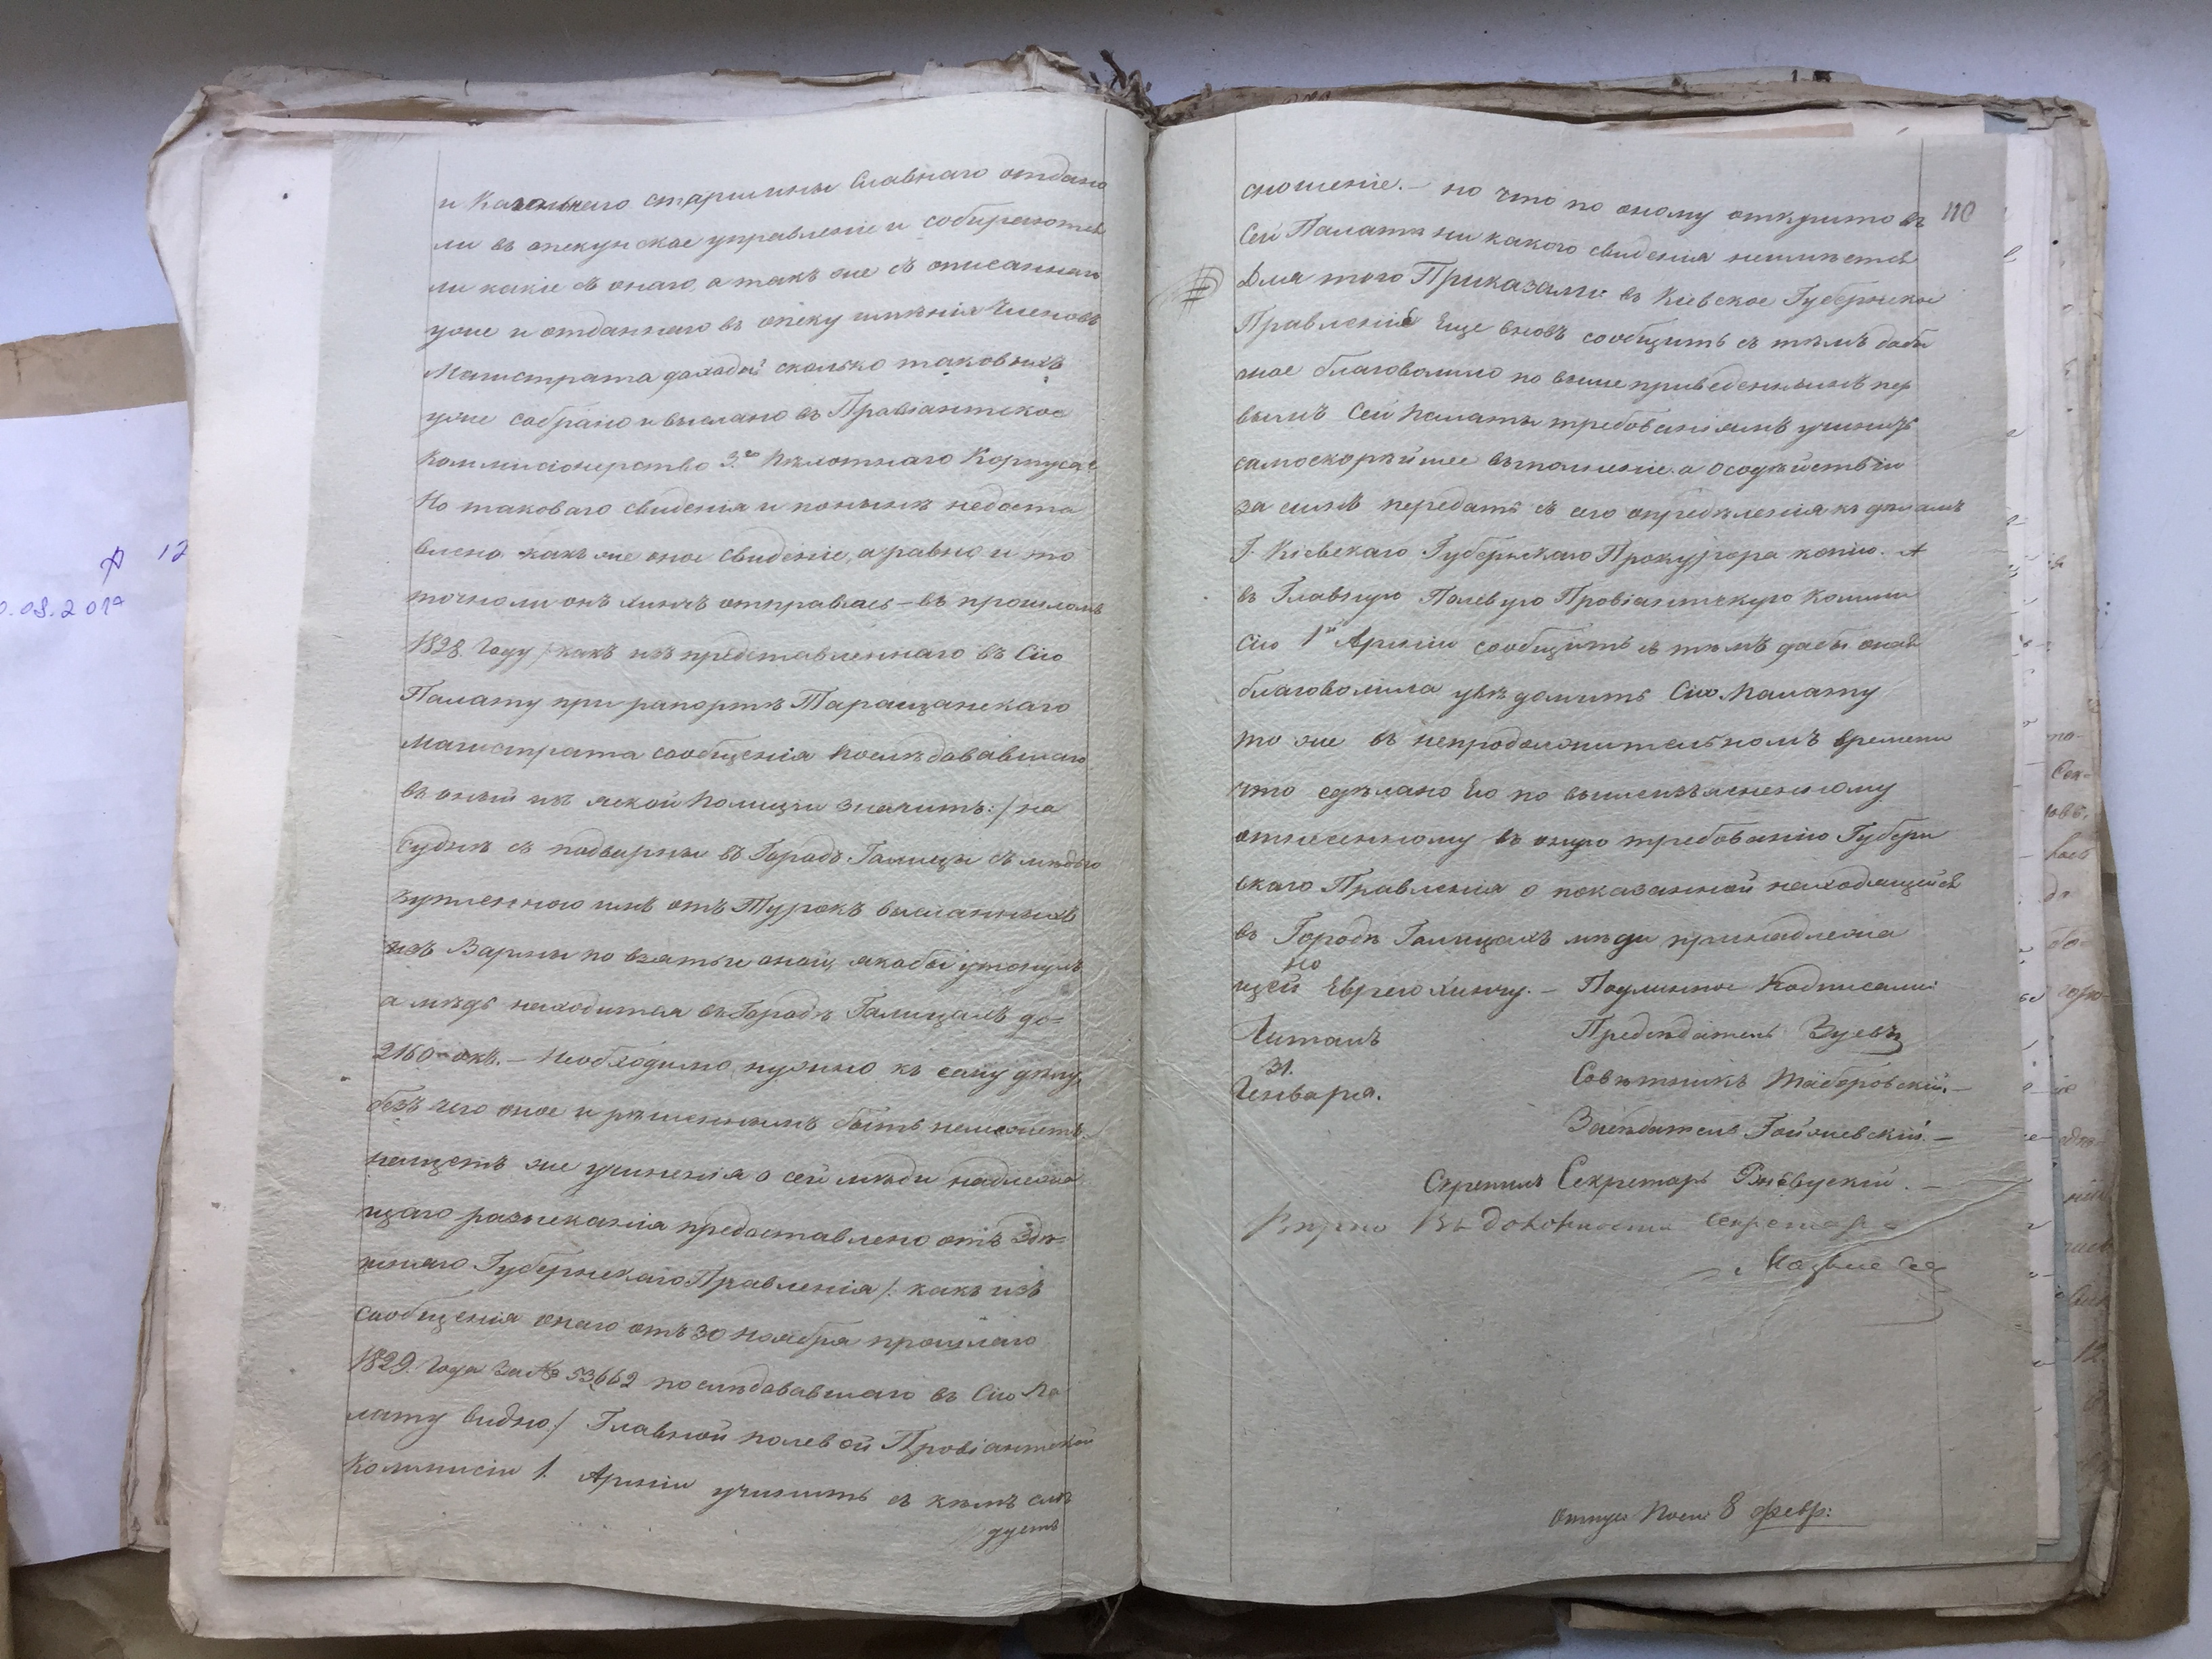 и Кагальнаго старшины Славнаго отдано
ли въ опекунское управленіе и собираются
ли какіе съ онаго, а такъ же съ описаннаго
уже и отданнаго въ опеку имѣнія Членовъ
Магистрата доходы сколько таковыхъ
уже собрано и выслано въ Провіантское
Коммисіонерство 3го Пѣхотнаго Корпуса
Но таковаго свиденія и понынѣ недоста
влено какъ же оное свиденіе, а равно и то
точноли онъ Хинчъ отправясь – въ прошломъ
1828. Году / какъ изъ представленнаго въ Сію
Палату при рапортѣ Таращанскаго
Магистрата сообщенія послѣдовавшаго
въ оный изъ Полиціи значитъ: / на
Суднѣ съ подварны въ Городъ Галицы съ мѣдью
купленною имъ отъ Турокъ высланныхъ
изъ Варны по взятьи оной, якобы утонулъ
а мѣдь находится въ Городѣ Галицахъ до=
2160 окъ. – Необходимо нужно къ сему дѣлу
безъ чего оное и рѣшеннымъ быть неможетъ
насчетъ же учиненія о сей мѣди надлежа
щаго разысканія предоставлено отъ Здѣ=
шняго Губернскаго Правленія /: какъ изъ
сообщенія онаго отъ 30 Ноября прошлаго
1829. Года За № 53662 послѣдовавшаго въ Сію Па
лату видно: / Главной полевой Провіантской
Коммисіи 1. Арміи учинить съ кѣмъ слѣ
дуетъ
110
сношеніе. – но что по оному открыто въ
Сей Палатѣ ни какого свиденія неимѣется
Для того Приказали: въ Кіевское Губернское
Правленіе Еще вновь сообщить съ тѣмъ дабы
оное благоволило по выше приведеннымъ пер
вымъ Сей Палаты требованіямъ учинить
самоскорѣйшее выполненіе. а о содѣйствіи
за симъ передать съ сего опредѣленія къ дѣламъ
Г. Кіевскаго Губернскаго Прокурора копію. А
въ Главную Полевую Провіантскую Комми
сію 1й Арміи сообщить съ тѣмъ дабы оная
благоволила увѣдомить Сію Палату
то же въ непродолжительномъ времени
что сдѣлано Ею по вышеизъясненному
отнесенному въ оную требованію Губерн
скаго Правленія о показанной находящейся
въ Городѣ Галицахъ мѣди принадлежа
щей Еврею Хинчу. – Подлинное Подписали:
но
Читалъ
31.
Генваря.
Предсѣдатель Зуевъ
Совѣтникъ
Засѣдатель
Скрепилъ Секретарь
Вѣрно Въ должности Секретаря
8 февр: